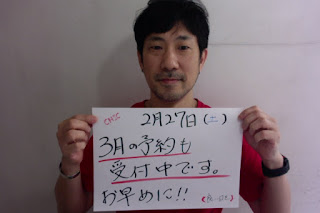 2月27日(土)
3月の予約も
受付中です。
お早めに!!